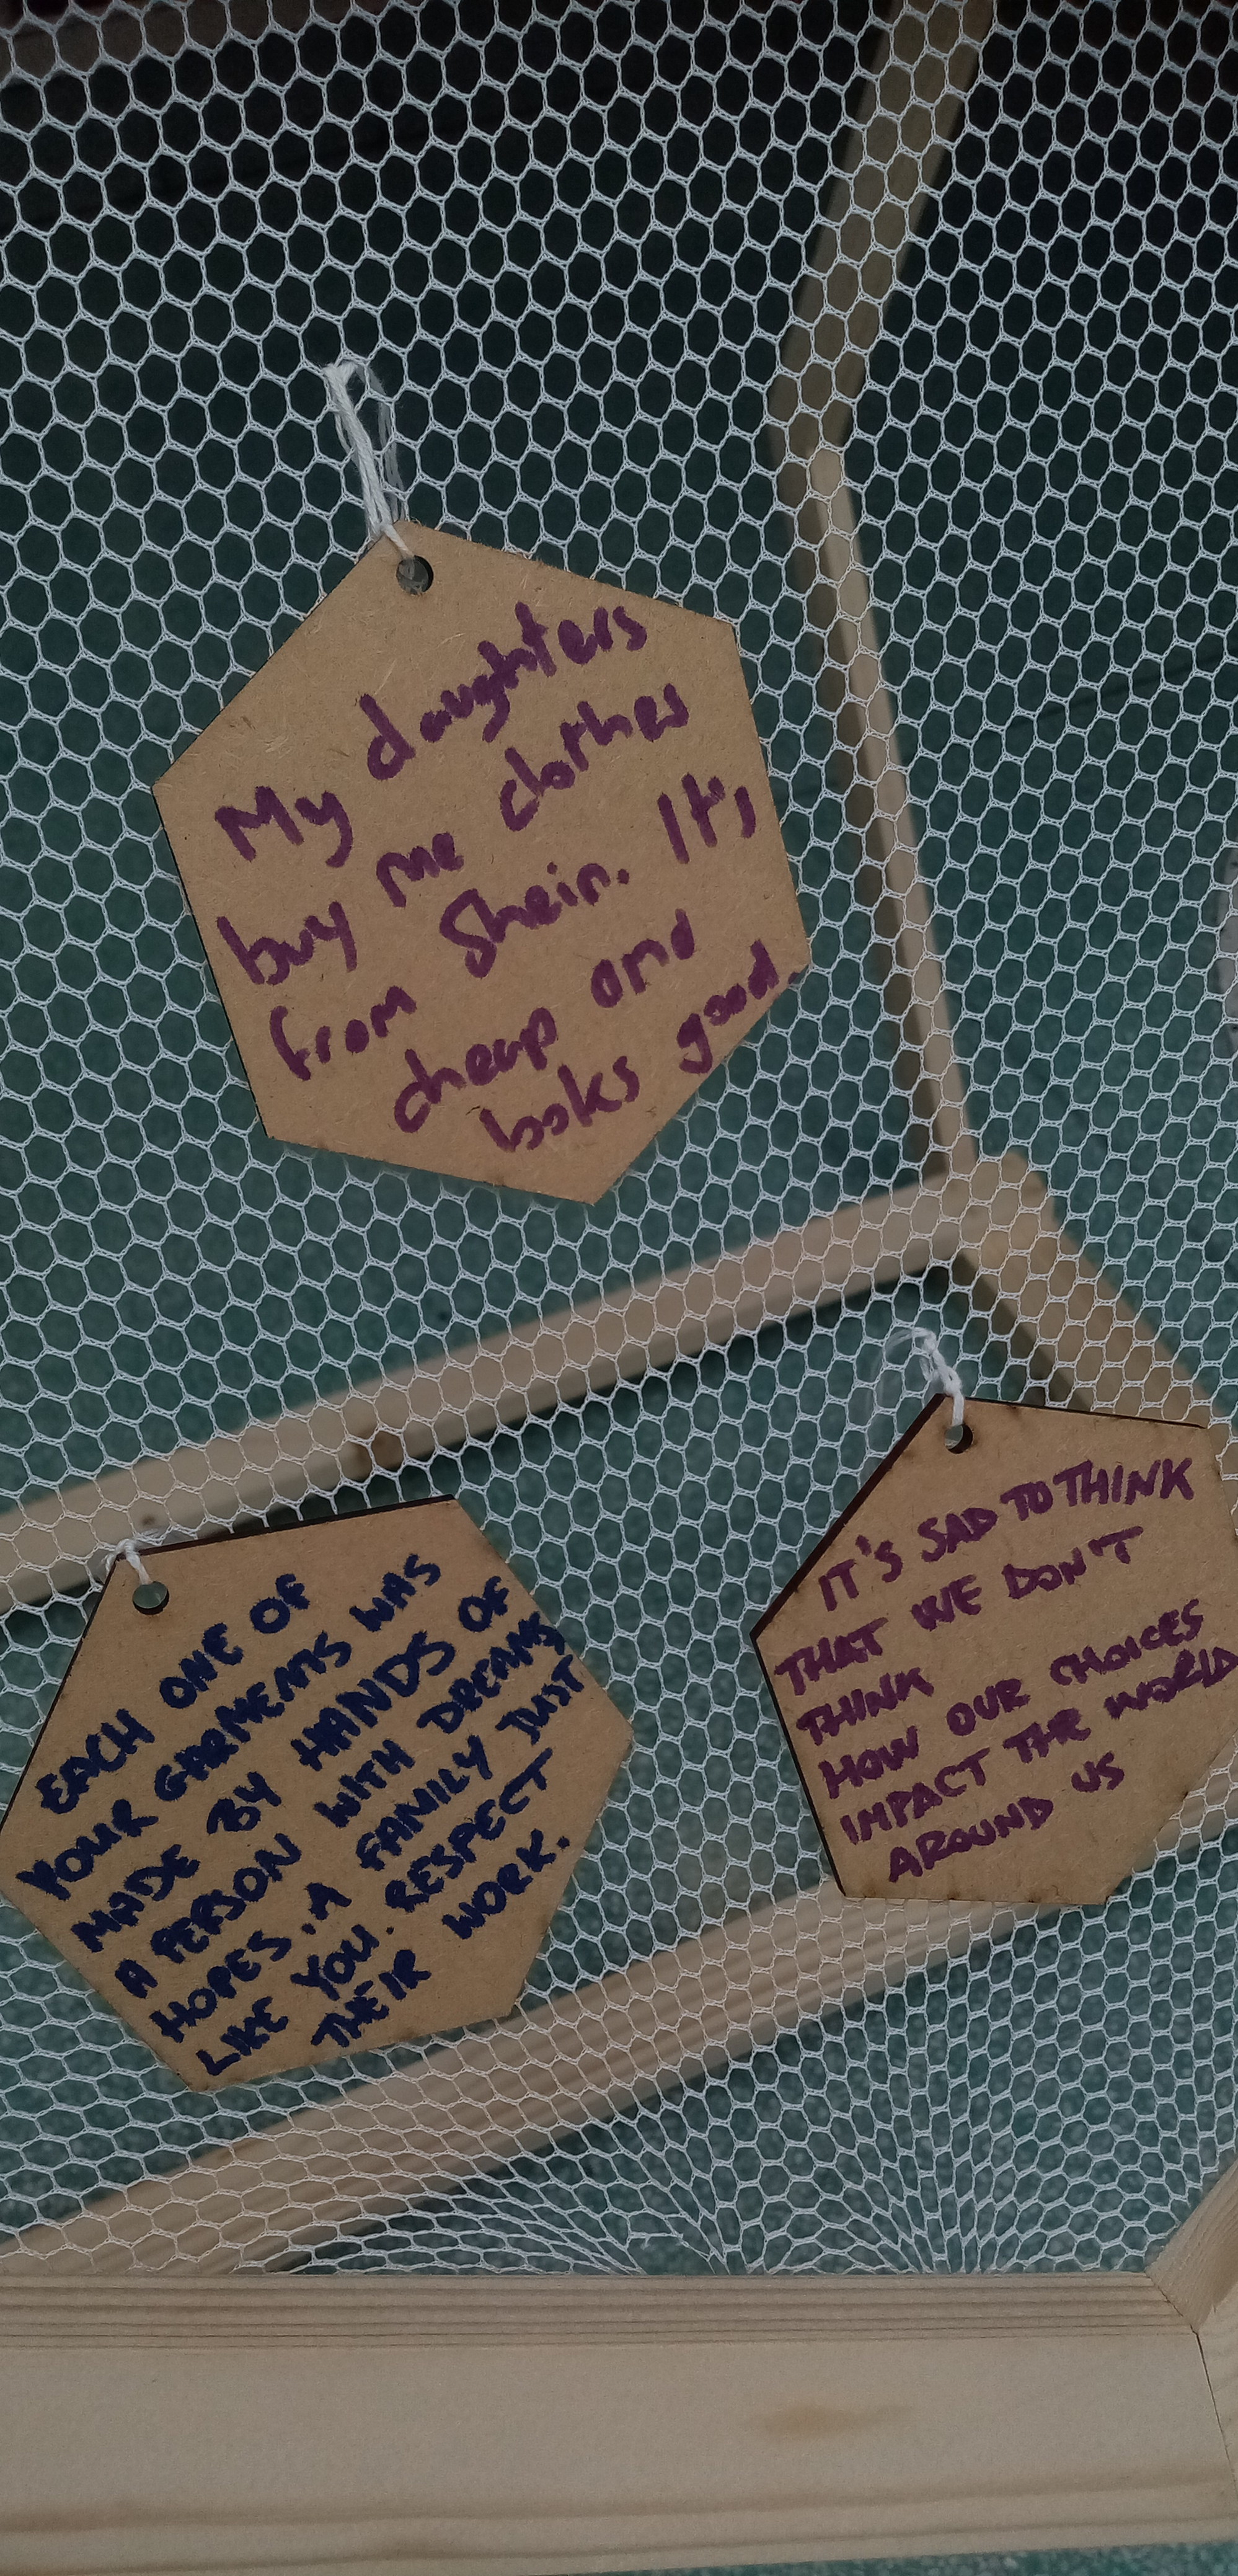 My daughters
buy me clothes
from Shein. It's
cheap and
looks good.
EACH ONE OF
YOUR GARMENTS WAS
MADE BY HANDS OF
A PERSON WITH DREAMS
HOPES, A FAMILY JUST
LIKE YOU. RESPECT
THEIR WORK.
IT'S SAD TO THINK
THAT WE DON'T
THINK
HOW OUR CHOICES
IMPACT THE WORLD
AROUND US